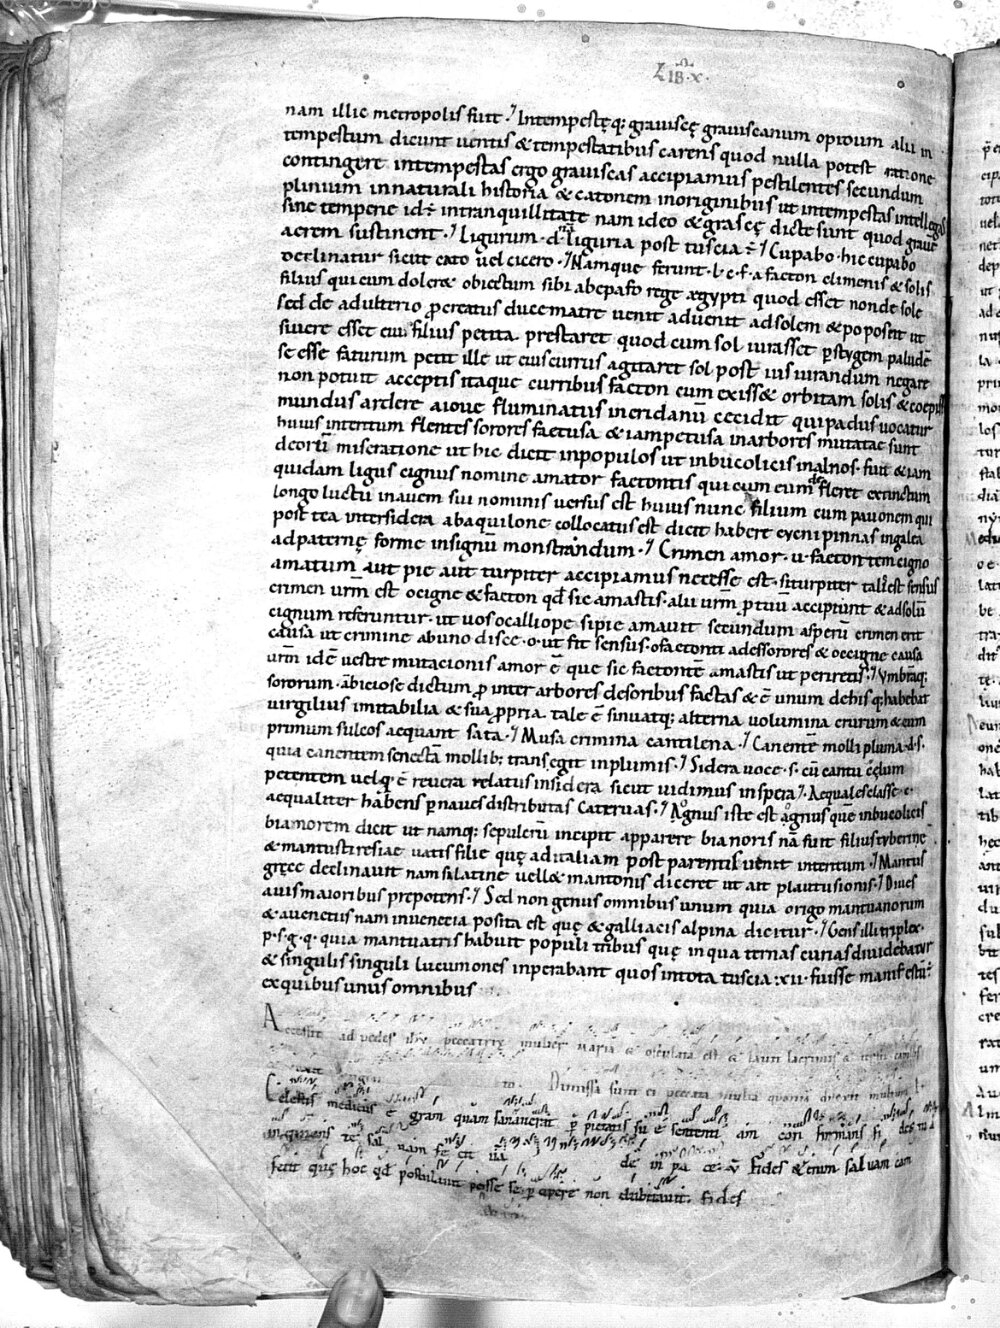 LIB X
nam illic metropolis fuit ·/ Intempestęq; grauiscę grauiscanum opidum alii in
tempestum dicunt uentis & tempestatibus carens quod nulla potest ratione
contingere intempestas ergo grauiscas accipiamus pestilentes secundum
plinium innaturali historia & catonem inoriginibus ut intempestas intellegas
sine temperie id÷ intranquillitate nam ideo & grascę dicte sunt quod graue
aerem sustinent ·/ Ligurum · d liguria post tuscia ÷ / Cupabo · hic cupabo
declinatur sicut cato uel cicero ·/ Namque ferunt · l · c · f · a facton climenis & solis
filius qui cum doler& obiectum sibi abepafo rege ęgypti quod esset nonde sole
sed de adulterio procreatus duce matre uenit aduenit adsolem & poposcit ut
siuere esset eiu filius petita prestaret quod cum sol iurasset pstygem paludē
se esse faturum petit ille ut eius currus agitaret sol post ius iurandum negare
non potuit acceptis itaque curribus facton cum exiss& orbitam solis & coepiss
mundus ardere aioue fluminatus ineridanū cecidit qui padus uocatur
huius interitum flentes sorores faetusa & iampetusa inarbores mutatae sunt
deorū miseratione ut hic dicit inpopulos ut inbucolicis inalnos · fuit & iam
quidam ligus cignus nomine amator factontis qui cum eum defleret extinctum
longo luctu inauem sui nominis uersus est huius nunc filium cum pauonem qui
post tea intersidera abaquilone collocatus est dicit habere cycni pinnas ingalea
adpaternę forme insignū monstrandum ·/ Crimen amor · u · factontem cigno
amatum aut pie aut turpiter accipiamus necesse est · siturpiter talis est sensus
crimen urm̄ est ocigne & facton qd̄ sic amastis · alii urm̄ p tuū accipiunt & adsolū
cignum referuntur · ut uos ocalliope sipie amauit secundum asperū crimen erit
causa ut crimine abuno disce · o · ut sit sensus · ofactonti adessorores & occigne causa
urm̄ idē uestre mutacionis amor ē que sic factontē amastis ut periretis ·/ Vmbraq;
sororum · ābiciose dictum p inter arbores desoribus factas & ē unum dehis q; habebat
uirgilius imitabilia & sua ppria tale ē sinuatq; alterna uolumina crurum & cum
primum sulcos aequant sata ·/ Musa crimina cantilena ·/ Canentē molli pluma · d · s ·
quia canentem senectā mollib; transegit inplumis ·/ Sidera uoce · s · cū cantu cęlum
petentem uelq · ē reuera relatus insidera sicut uidimus inspera / · Aequales classe · c ·
aequaliter habens p naues distributas cateruas ·/ Agnus iste est agnus quē inbucolicis
bianorem dicit ut namq; sepulcrū incipit apparere bianoris nā fuit filius tyberine
& mantus tiresiae uatis filie quę aditaliam post parentis uenit interitum ·/ Mantus
gręce declinauit nam silatine uell& mantonis diceret ut ait plautusionis ·/ Diues
auis maioribus prepotens ·/ Sed non genus omnibus unum quia origo mantuanorum
& auenetus nam inuenecia posita est quę & galliacis alpina dicitur ·/ Gens illi triplex ·
p · s · g · q · quia mantuatris habuit populi tribus quę in qua ternas curias diuidebatur
& singulis singuli lucumones inperabant quos intota tuscia · xii · fuisse manifestū ÷
ex quibus unus omnibus
Accessit ad pedes ihu peccatrix mulier maria & osculata est & lauit lacrimis &
Dimissa sunt ei peccata multa quoniam dilexit multum
Celestis medicus ē gram quam sanauerat p pietatis suę sententiam confirmans fides tua
inquirens te saluam fecit uade in pace · v Fides &enim saluam eam
fecit quę hoc qd postulauit posse se p cipere non dubitauit · fides